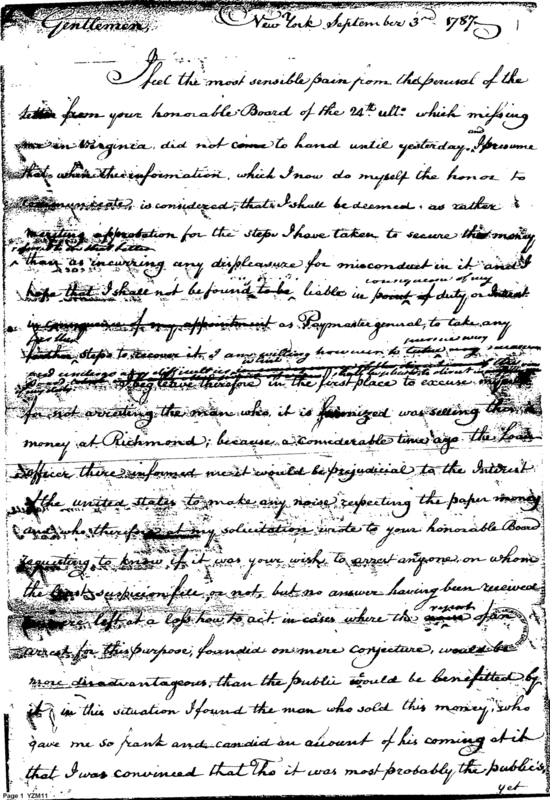 Gentlemen, New York September 3rd 1787
I feel the most sensible pain from the perusal of the
letter from your honorable Board of the 24th ulto. which missing
me in Virginia did not come to hand until yesterday. and I presume
that when the information, which I now do myself the honor to
communicate, is considered, that I shall be deemed as rather
meriting approbation for the steps I have taken to secure this money
than as incurring any displeasure for misconduct in it and I
consequence of my
hope that I shall not be found to be liable in point of duty or Interest
in consequence of my appointment as Paymaster general, to take any
further steps to recover it, I am willing however to
I beg leave therefore in the first place to excuse myself
for not arresting the man who, it is surmized was selling this
money at Richmond; because a considerable time ago the Loan
officer there informed me it would be prejudicial to the Interest
of the united states to make any noise respecting the paper money
and who therefore at my solicitation wrote to your honorable Board
requesting to know, if it was your wish to arrest anyone, on whom
the least suspicion fell, or not, but no answer having been received
we were left at a loss how to act, in cases where the report of an
arrest for this purpose, founded on mere conjecture, would be
more disadvantageous, than the public would be benefitted by
it in this situation I found the man who sold this money, who
gave me so frank and candid an account of his coming at it
that I was convinced that tho it was most probably the public's,
yet
Page 1 YZM11